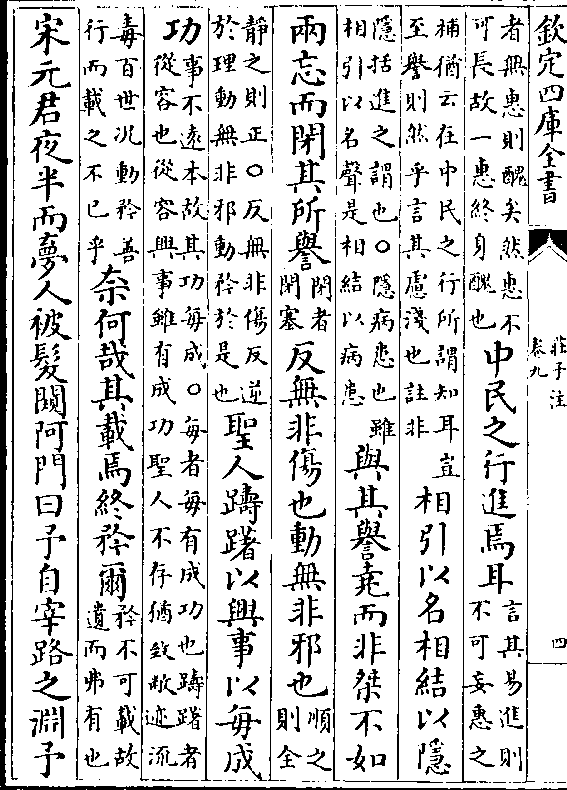 欽定四庫全書
莊子注
卷九
四
者無惠則醜矣然惠不
可長故一惠終身醜也
中民之行進焉耳
言其易進則
不可妄惠之
補猶云在中民之行所謂知耳豈
至譽則然乎言其慮淺也註非
相引以名相結以隱
隱括進之謂也○隱病患也雖
相引以名聲是相結以病患
與其譽堯而非桀不如
兩忘而閉其所譽
閉者
閉塞
反無非傷也動無非邪也
順之
則全
靜之則正○反無非傷反逆
於理動無非邪動矜於是也
聖人躊躇以興事以每成
功
事不遠本故其功每成○每者每有成功也躊躇者
從容也從容興事雖有成功聖人不存猶致敝迹流
毒百世況動矜善
行而載之不已乎
奈何哉其載焉終矜爾
矜不可載故
遺而弗有也
宋元君夜半而夢人被髮闚阿門曰予自宰路之淵予